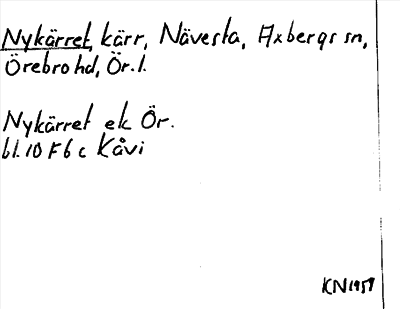 Nykärret, kärr, Nävesta, Axbergs sn,
Örebro hd, Ör. l.
Nykärret ek Ör.
bl. 10 F 6 c Kåvi
KN 1959